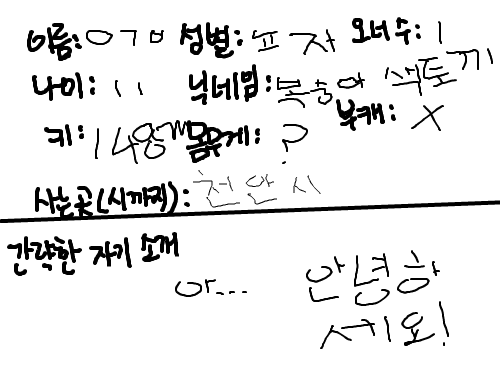 이름: ㅇㄱㅂ 성별: ㅍ자 오너수: 1
나이: 11 닉네임: 복숭아 색토끼
키: 148cm 몸무게: ? 부캐: X
사는곳(시까지): 천안시
간략한 자기 소개
아... 안녕하
세요!